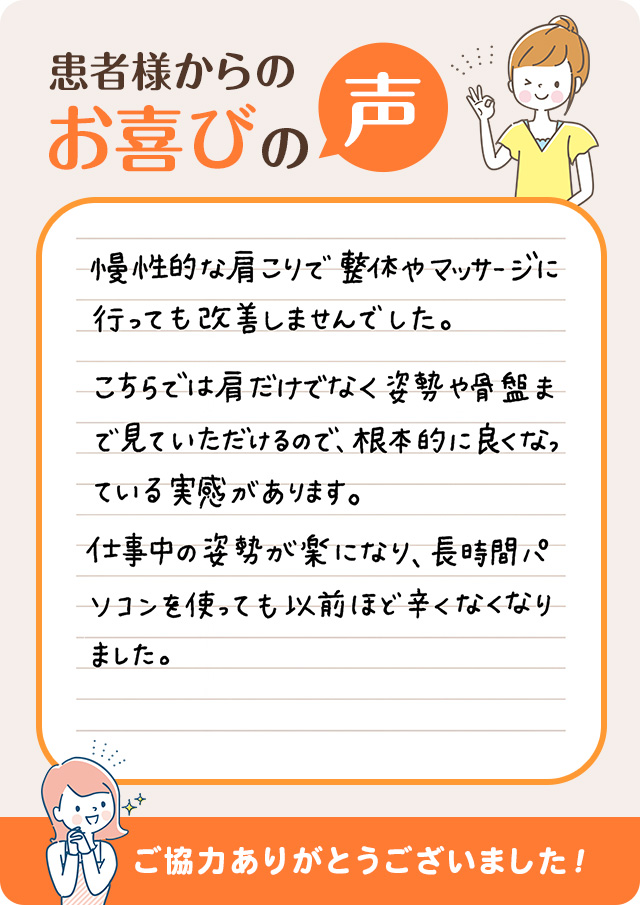 患者様からの
お喜びの声
慢性的な肩こりで整体やマッサージに
行っても改善しませんでした。
こちらでは肩だけでなく姿勢や骨盤ま
で見ていただけるので、根本的に良くなっ
ている実感があります。
仕事中の姿勢が楽になり、長時間パ
ソコンを使っても以前ほど辛くなくなり
ました。
ご協力ありがとうございました！